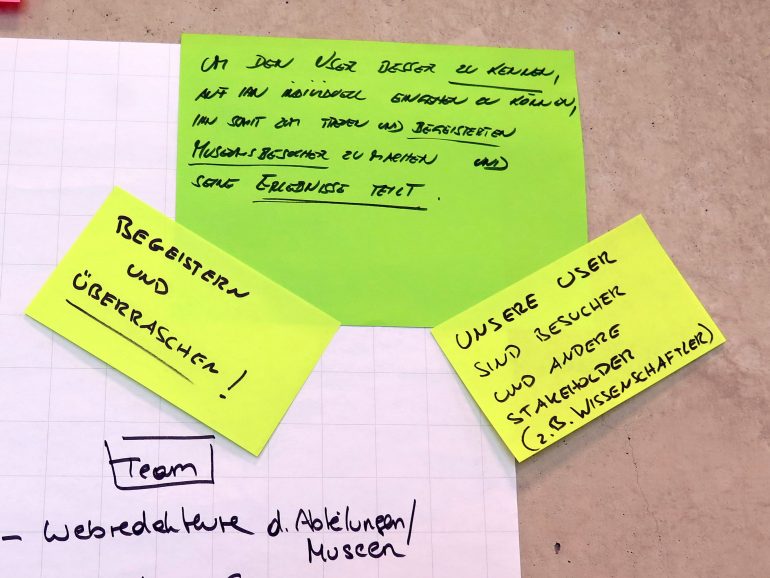 UM DEN USER BESSER ZU KENNEN,
AUF IHN INDIVIDUELL EINGEHEN ZU KÖNNEN,
IHN SOMIT ZUM TREUEN UND BEGEISTERTEN
MUSEUMSBESUCHER ZU MACHEN UND
SEINE ERLEBNISSE TEILT.
BEGEISTERN
UND
ÜBERRASCHEN!
UNSERE USER
SIND BESUCHER
UND ANDERE
STAKEHOLDER
(z.B. WISSENSCHAFTLER)
Team
- Webredakteure d. Abteilungen/
Museen